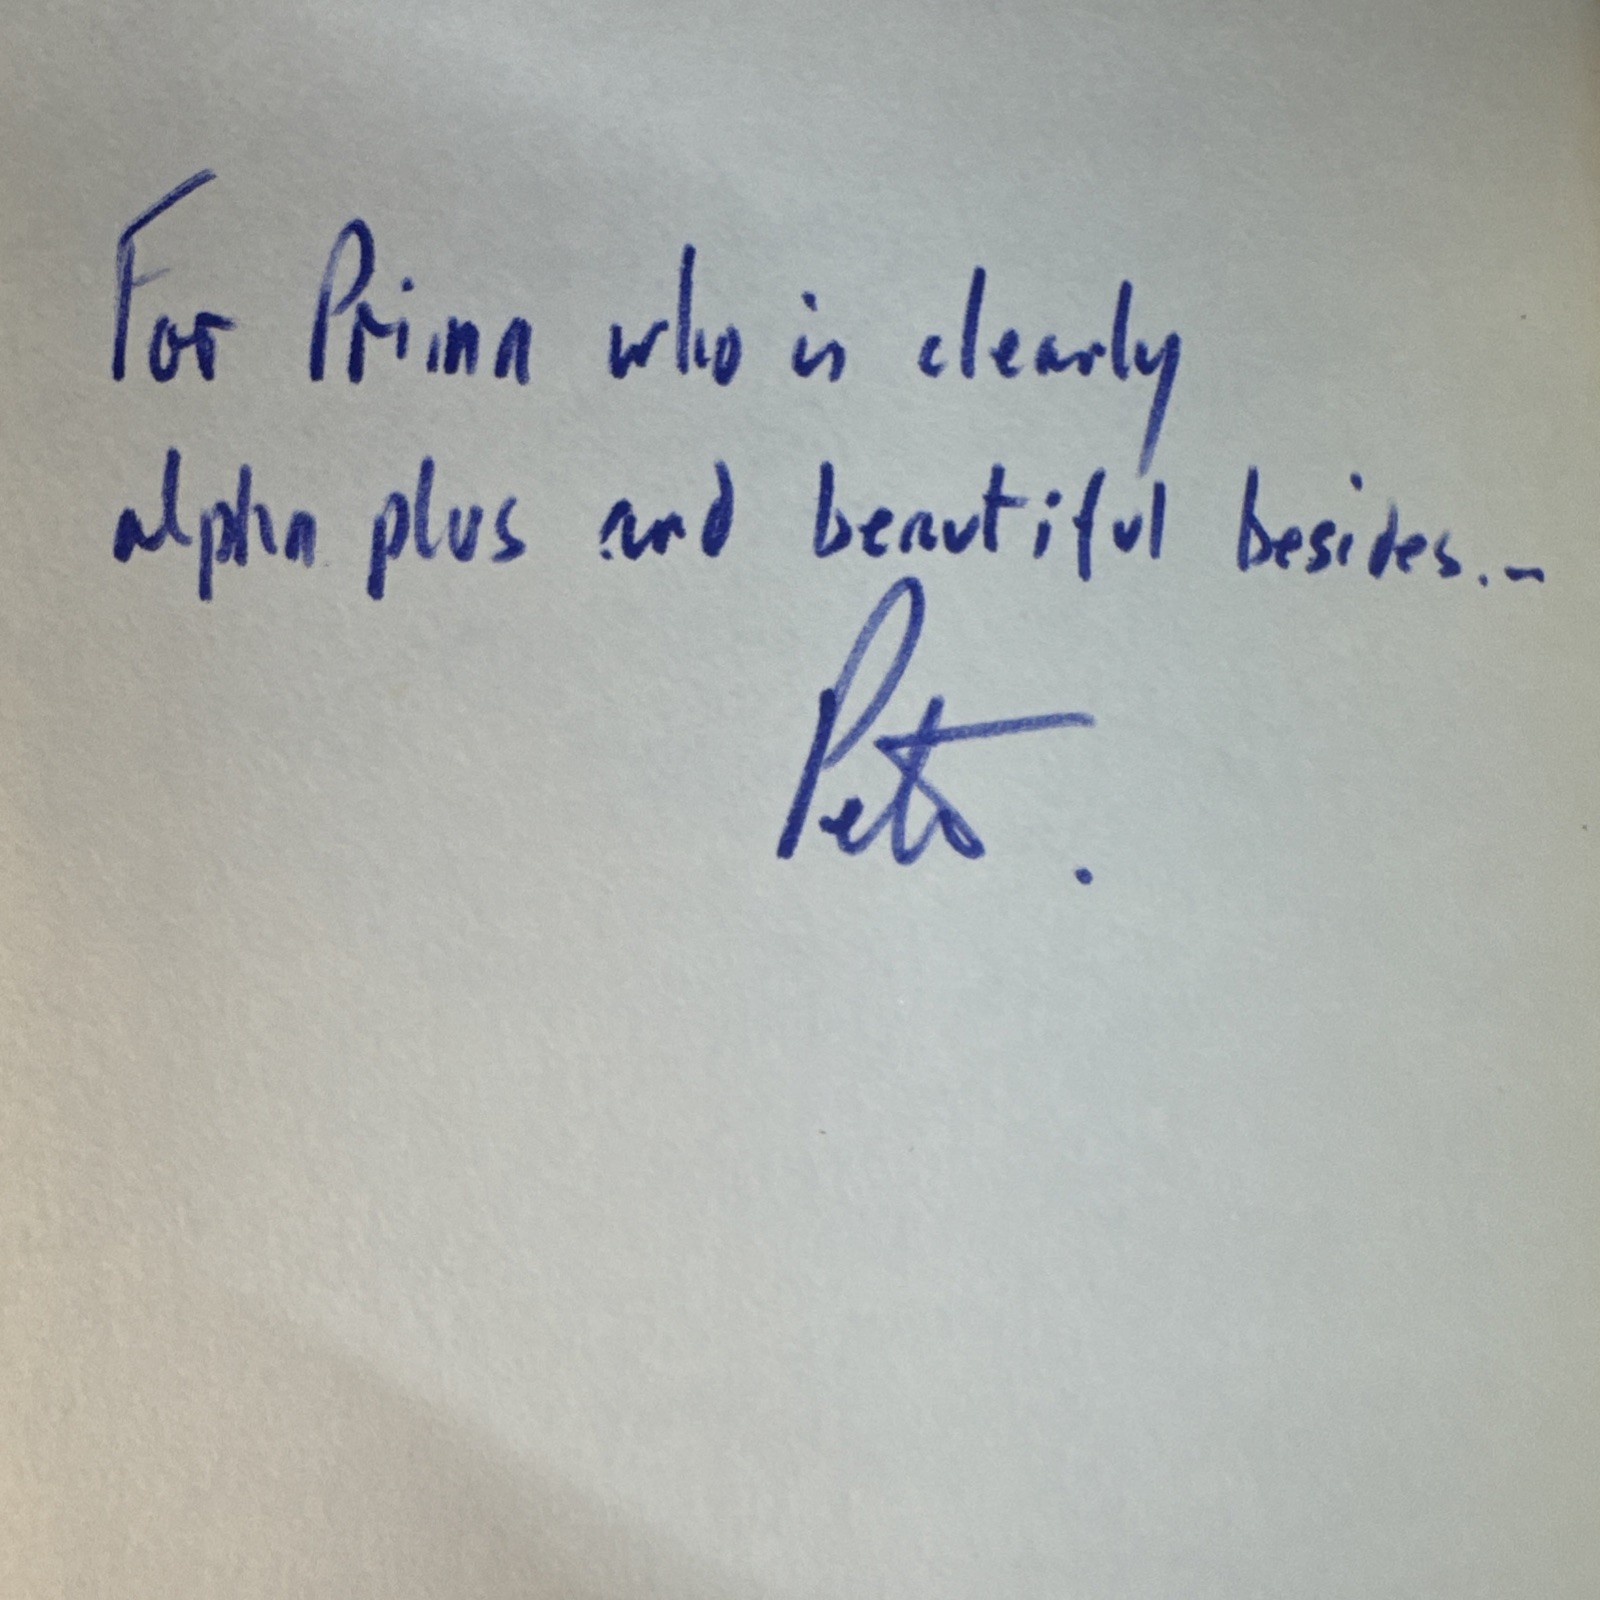 For Prima who is clearly
alpha plus and beautiful besides.–
Peter.